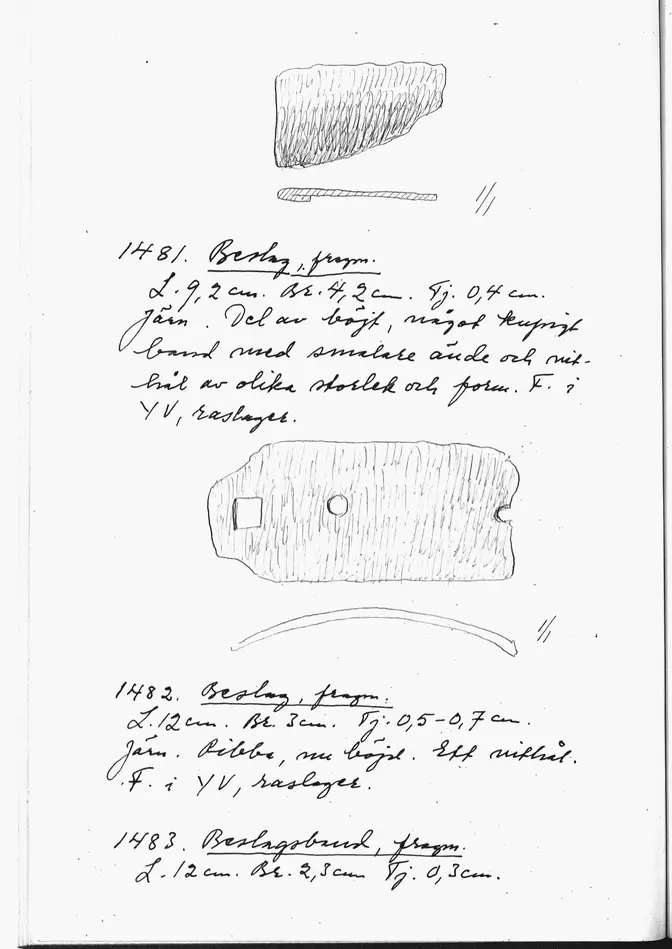 1/1
1481. Beslag, fragm.
L. 9,2 cm. Br. 4,2 cm. Tj. 0,4 cm.
Järn. Del av böjt, något kupigt
band med smalare ände och nit-
hål av olika storlek och form. F. i
YV, raslager.
1/1
1482. Beslag, fragm.
L. 12 cm. Br. 3 cm. Tj. 0,5-0,7 cm.
Järn. Ribba, nu böjd. Ett nithål.
F. i YV, raslager.
1483. Beslagsband, fragm.
L. 12 cm. Br. 2,3 cm Tj. 0,3 cm.